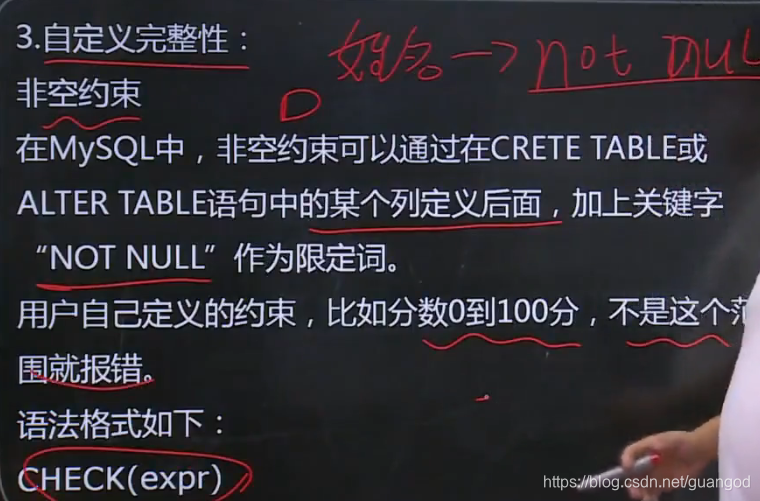 3.自定义完整性：
姓名→not nul
非空约束
在MySQL中，非空约束可以通过在CRETE TABLE或
ALTER TABLE语句中的某个列定义后面，加上关键字
“NOT NULL”作为限定词。
用户自己定义的约束，比如分数0到100分，不是这个范
围就报错。
语法格式如下：
CHECK(expr)
https://blog.csdn.net/guangod